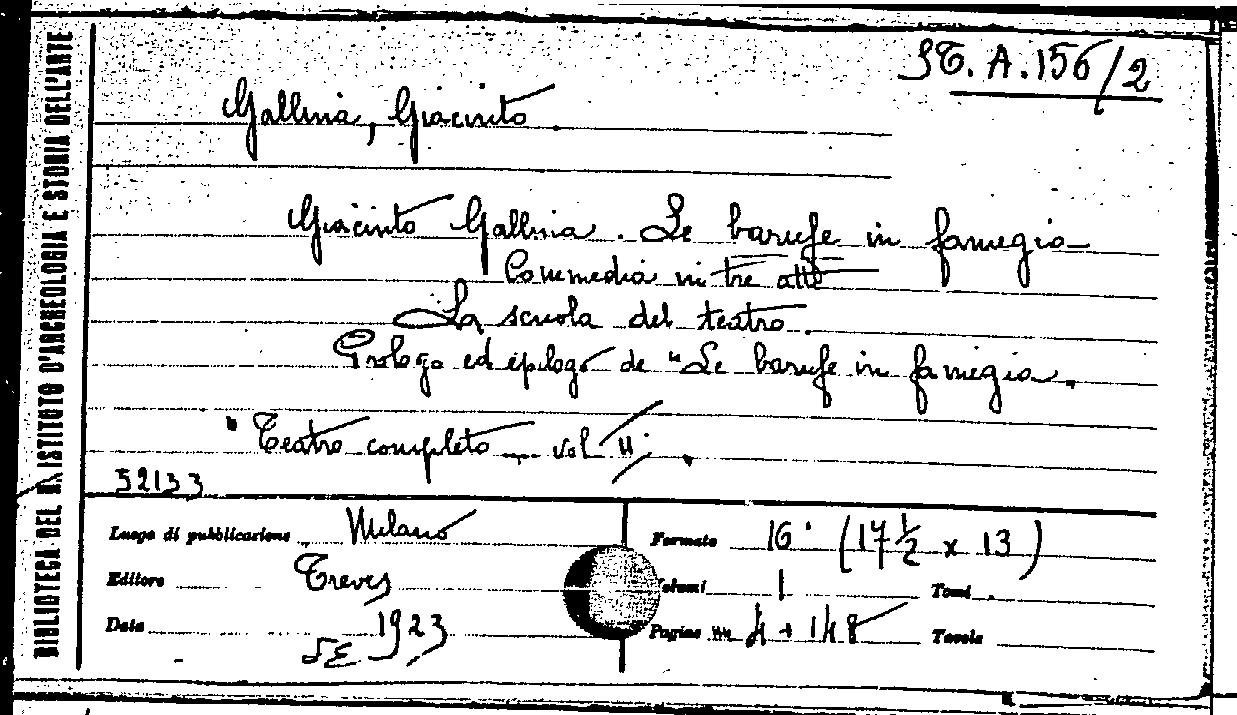 BIBLIOTECA DEL R. ISTITUTO D'ARCHEOLOGIA E STORIA DELL'ARTE
ST. A. 156/2
Gallina, Giacinto
Giacinto Gallina. Le barufe in famegia
Commedia in tre atti
La scuola del teatro.
Prologo ed epilogo de "Le barufe in famegia.
"Teatro completo vol II;
52133
Luogo di pubblicazione Milano
Formato 16° (17 1/2 x 13)
Editore Treves
Volumi 1 Tomi
Data 1923
Pagine 4 + 148 Tavole